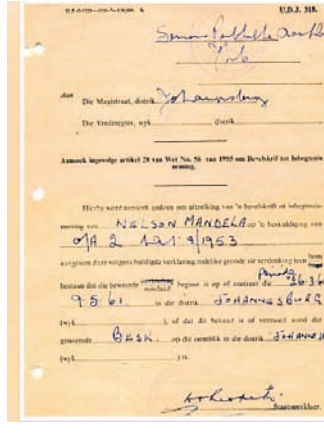 U.D.J. 315.
Senior
Aan
Die Magistraat, distrik Johannesburg
Die Vrederegter, wyk distrik
Aansoek ingevolge artikel 28 van Wet No. 56 van 1955 om Bevelskrif tot Inhegtenis-
neming.
Hierby word aansoek gedoen om uitreiking van 'n bevelskrif tot inhegtenis-
neming van NELSON MANDELA op 'n beskuldiging van
O/A 2 1953
aangesien daar volgens beëdigde verklaring redelike gronde vir verdenking teen hom
bestaan dat die beweerde misdaad begaan is op of omtrent die 26-3-6
9.5.61. in die distrik JOHANNESBURG
(wyk ), of dat dit bekend is of vermoed word dat
genoemde BESK. op die oomblik in die distrik JOHANNES
(wyk ) is.
Staatsaanklaer.